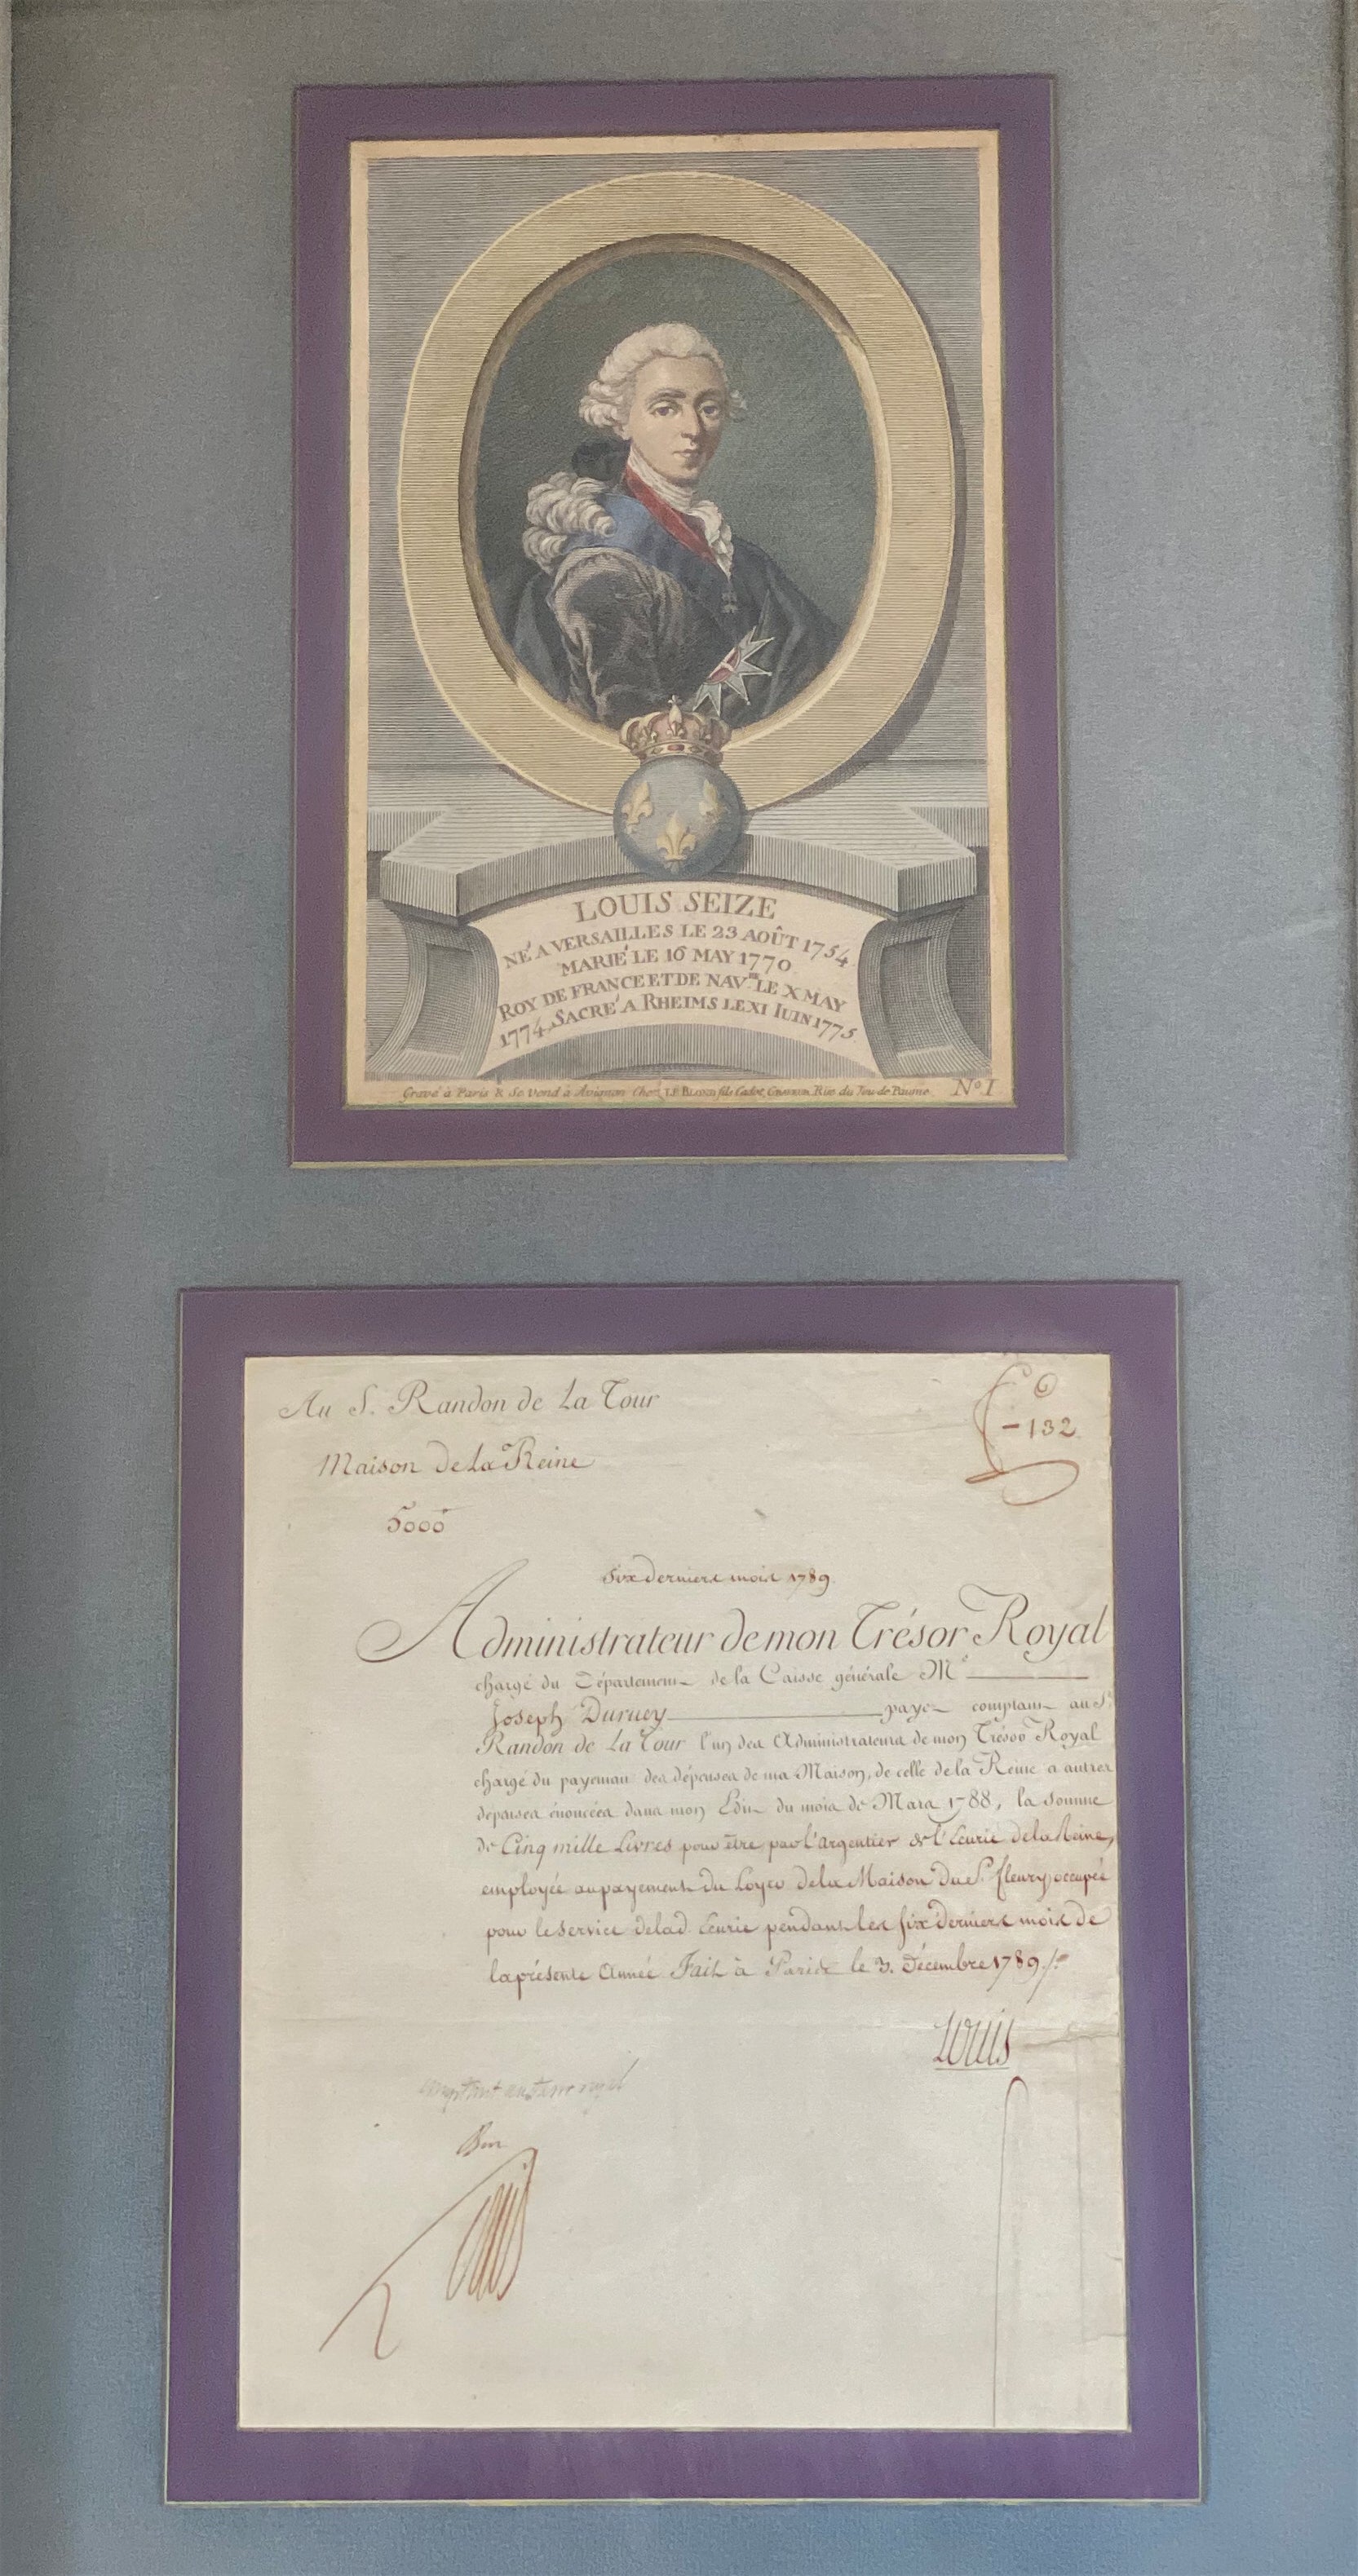 LOUIS SEIZE
NÉ A VERSAILLES LE 23 AOÛT 1754.
MARIÉ LE 16 MAY 1770.
ROY DE FRANCE ET DE NAV.RE LE X MAY
1774, SACRÉ A RHEIMS LE XI IUIN 1775.
Gravé à Paris & Se Vend à Avignon Chez LE BLOND fils Cadet, Graveur, Rue du Jeu de Paume. No. I
Au S. Randon de La Tour
132
Maison de La Reine
5000
Six derniers mois 1789.
Administrateur de mon Trésor Royal
chargé du Département de la Caisse générale M.e
Joseph Duruey payez comptant au S.r
Randon de La Tour l'un des Administrateurs de mon Trésor Royal
chargé du payement des dépenses de ma Maison, de celle de la Reine & autres
dépenses énoncées dans mon Edit du mois de Mars 1788, la somme
de Cinq mille Livres pour être par l'argentier de l'Ecurie de la Reine,
employée au payement du Loyer de la Maison du S.r fleury occupée
pour le service de lad. Ecurie pendant les six derniers mois de
la présente Année Fait à Paris le 3. Décembre 1789./.
Louis
comptant au
Bon